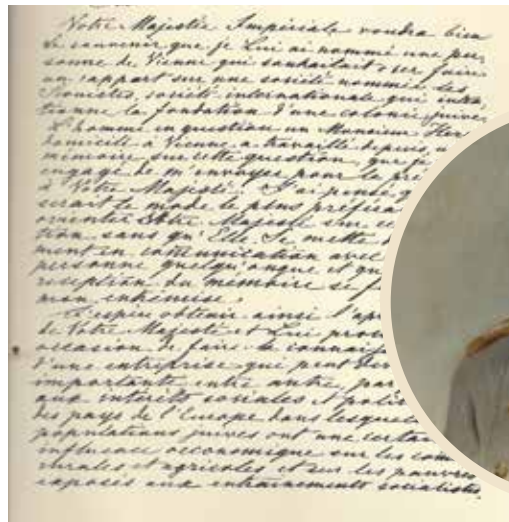 Votre Majestée Impériale voudra bien
se souvenir que je Lui ai nommé une per-
sonne de Vienne qui souhaitait oser faire
un rapport sur une société nommée les
Sionistes, société internationale qui inten-
tionne la fondation d'une colonie juive.
L'homme en question un Monsieur Her
domicilé à Vienne a travaillé depuis, u
mémoire sur cette question, que je
engagé de m'envoyer pour le pré
à Votre Majesté. J'ai pensé q
serait le mode le plus préféra
orienter Votre Majesté sur ce
tion sans qu'Elle Se mette
ment en comunication avec
personne quelqu'onque et qu
réseption du mémoire se f
mon entremise.
J'espère obtenir ainsi l'ap
de Votre Majesté et Lui pro
occasion de faire la connais
d'une entreprise qui peut
importante entre autre, par
aux interêts sociales et poli
des pays de l'Europe dans lesquel
populations juives ont une certai
influence oeconomique sur les com
rurales et agricoles et sur les pauvres
exposés aux entrainements socialistes